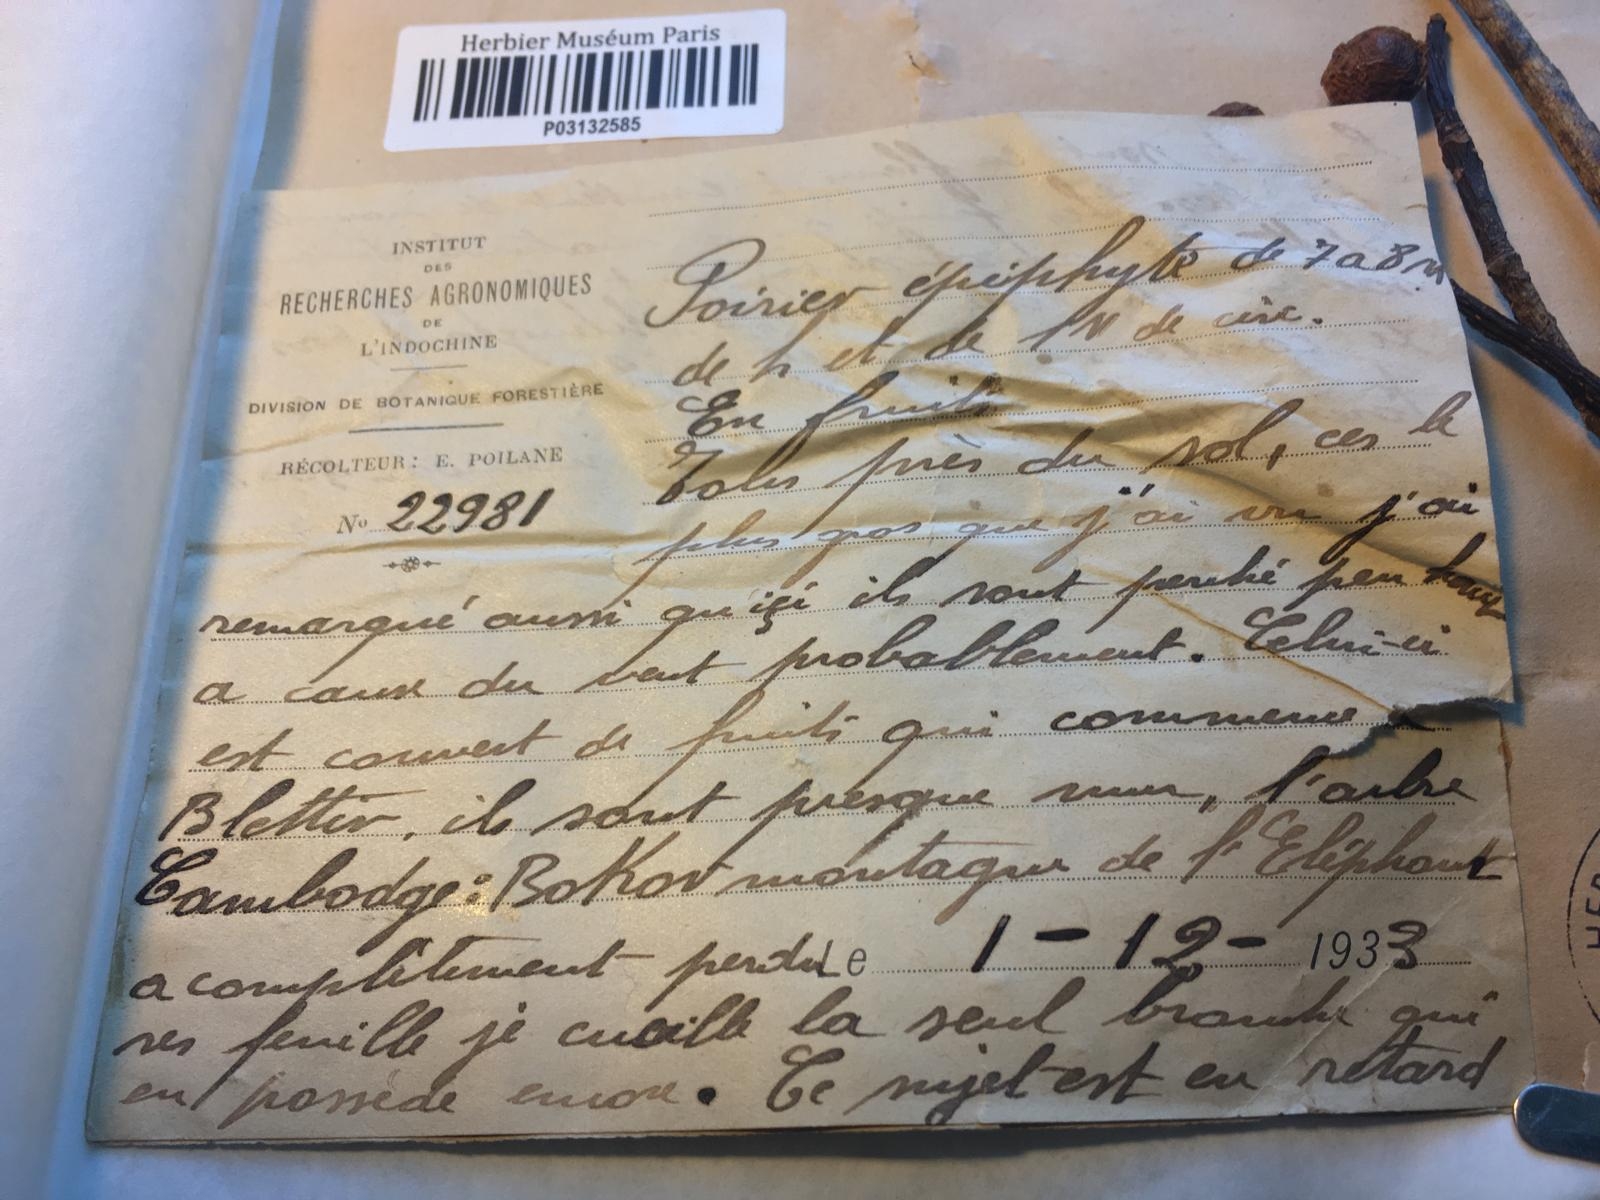 Herbier Muséum Paris
P03132585
INSTITUT
DES
RECHERCHES AGRONOMIQUES
DE
L'INDOCHINE
DIVISION DE BOTANIQUE FORESTIÈRE
RÉCOLTEUR : E. POILANE
No 22981
Poirier épiphyte de 7 a 8 m
de h et de 1m de circ.
En fruits
près du sol, ces le
plus gos que j'ai vu j'ai
remarqué aussi qu'içi ils sont perché peu haut
a cause du vent probablement. Celui-ci
est couvert de fruits qui commence a
Blettir, ils sont presque mur, l'arbre
Cambodge: BoKor montagne de l'Eléphant
a complètement perdu Le 1-12-1933
ses feuille je cueille la seul branche qui
en possède encore. Ce sujet est en retard